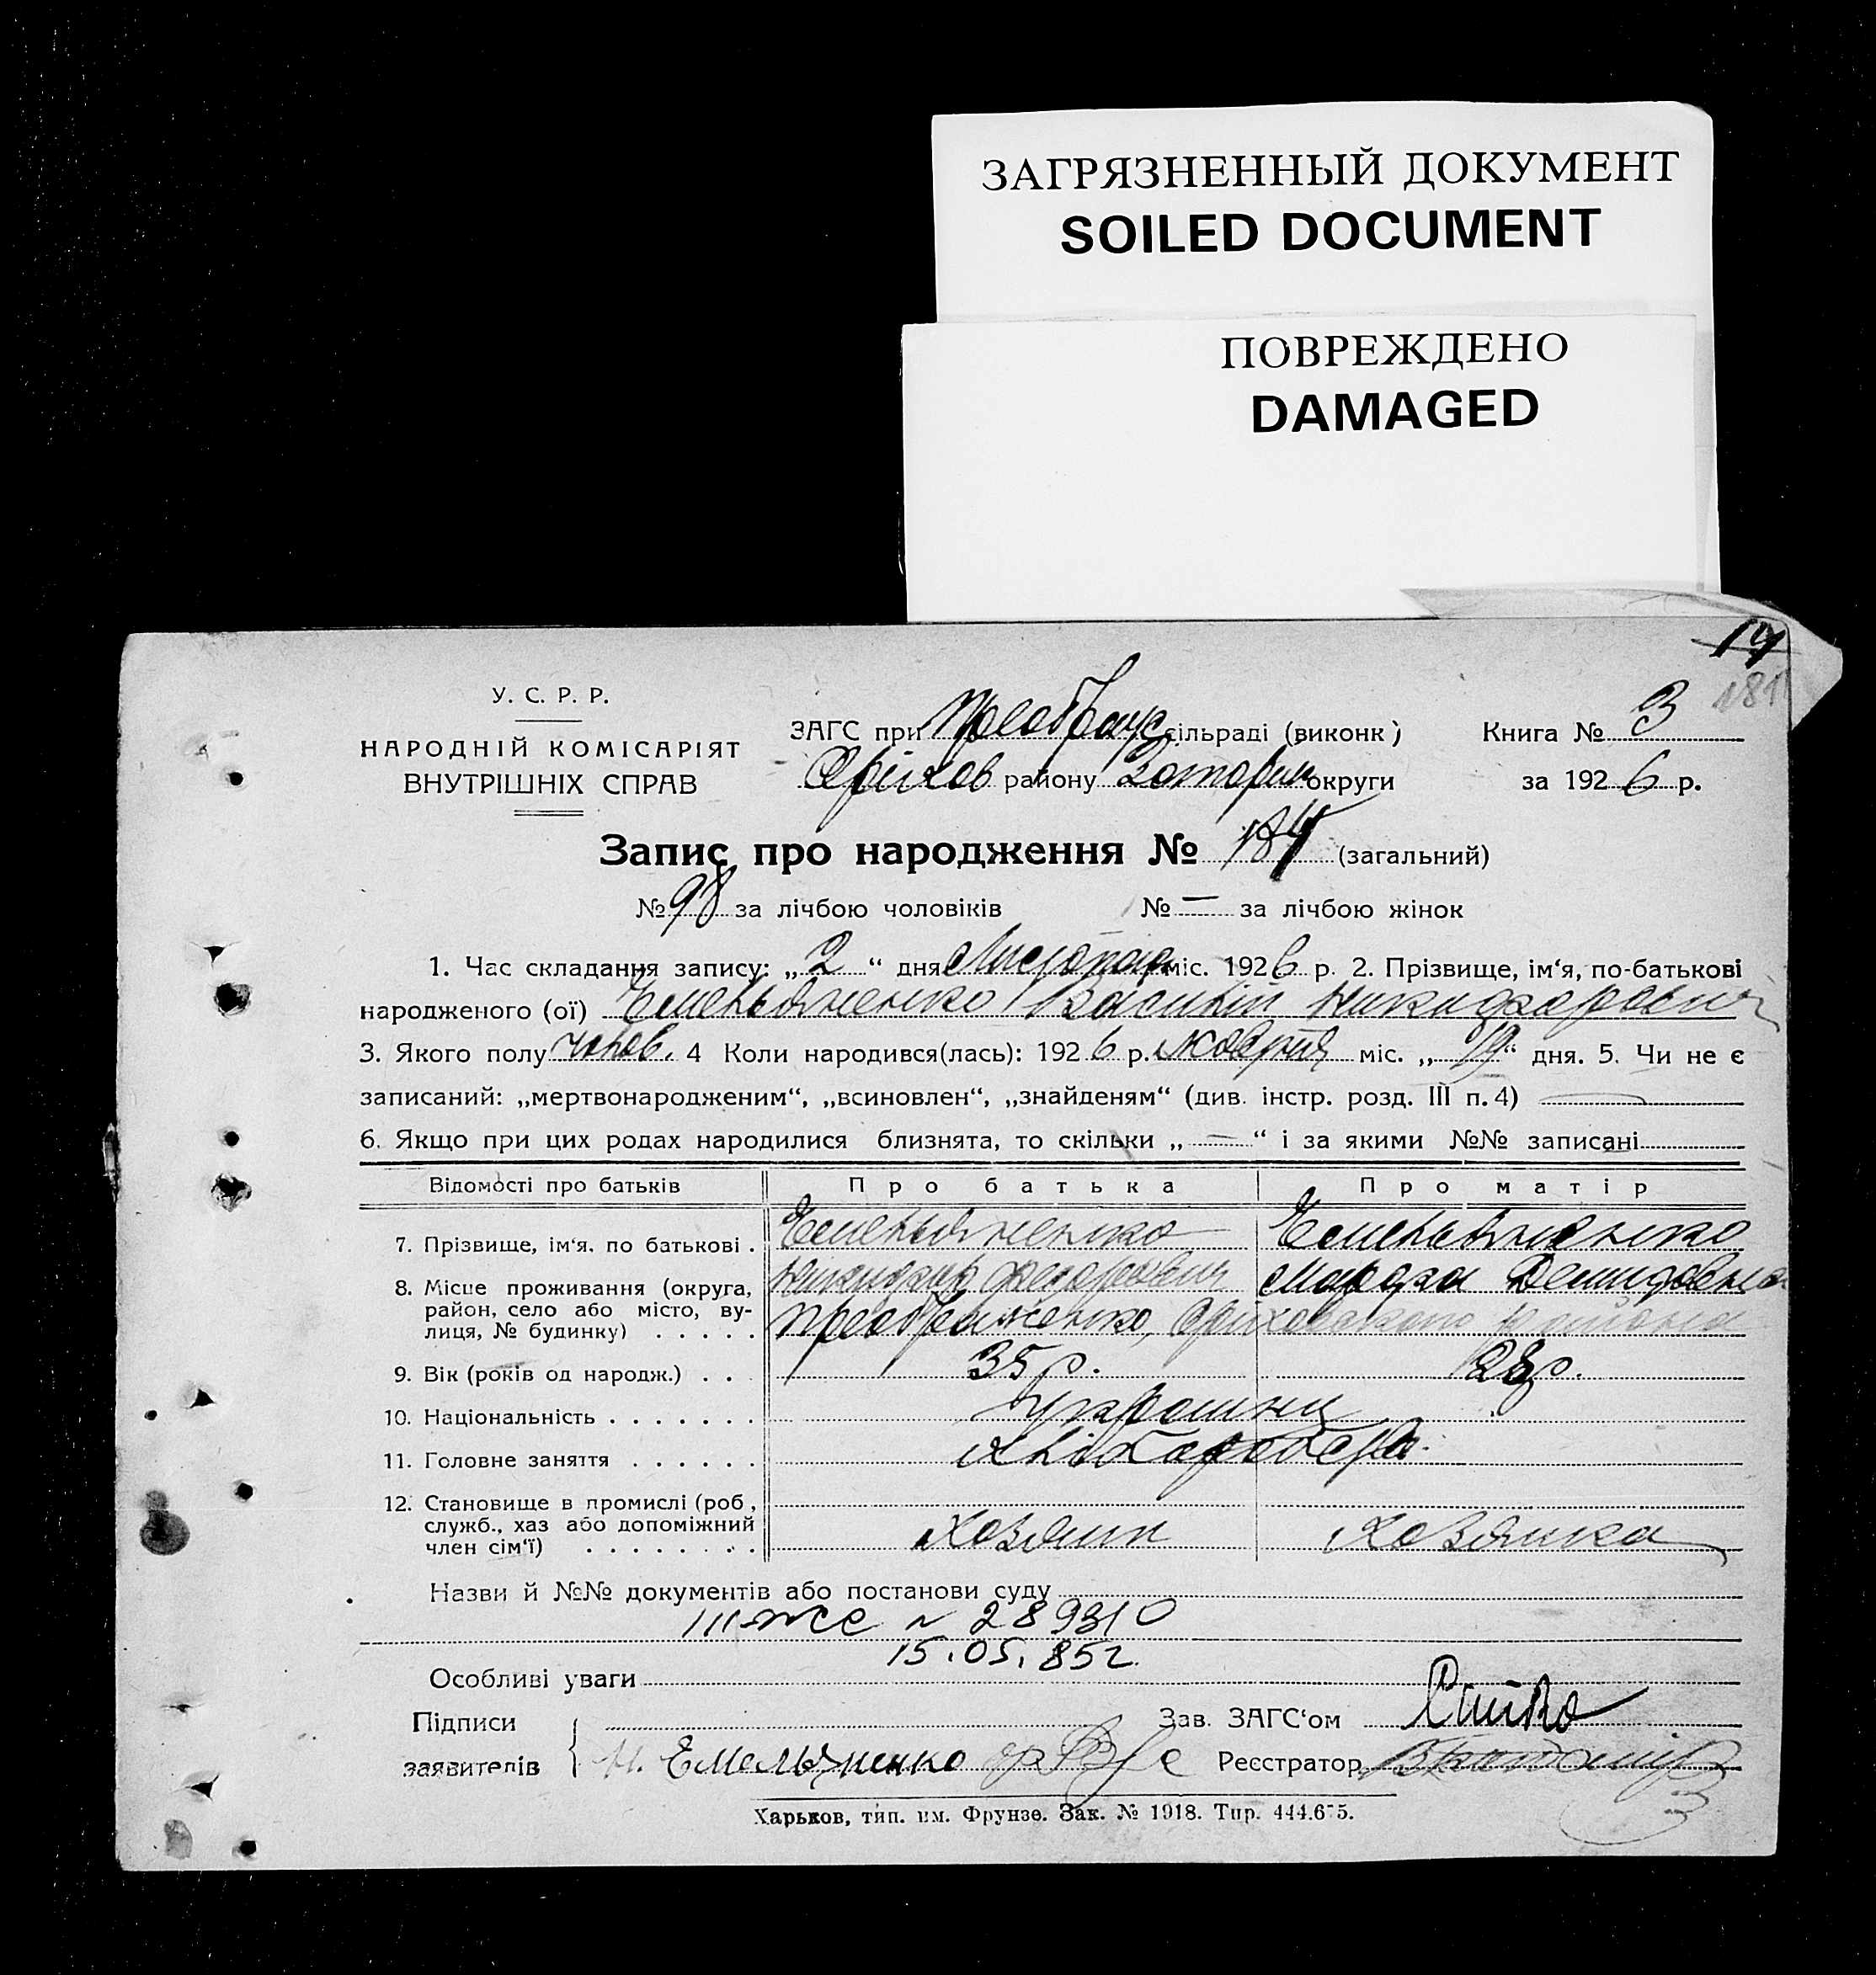 ЗАГРЯЗНЕННЫЙ ДОКУМЕНТ
SOILED DOCUMENT
ПОВРЕЖДЕНО
DAMAGED
14
181
У. С. Р. Р.
НАРОДНІЙ КОМІСАРІЯТ
ВНУТРІШНІХ СПРАВ
ЗАГС при Преображ. сільраді (виконк.) Книга № 3
Оріхов району Запоріж округи за 1926 р.
Запис про народження № 184 (загальний)
№ 98 за лічбою чоловіків № — за лічбою жінок
1. Час складання запису: „2“ дня Листопад міс. 1926 р. 2. Прізвище, ім‘я, по-батькові
народженого (ої) Емельяненко Василій Никифорович
3. Якого полу чолов. 4 Коли народився(лась): 1926 р. жовтня міс. „19“ дня. 5. Чи не є
записаний: „мертвонародженим“, „всиновлен“, „знайденям“ (див. інстр. розд. III п. 4) —
6. Якщо при цих родах народилися близнята, то скільки „—“ і за якими №№ записані
Відомості про батьків Про батька Про матір
7. Прізвище, ім‘я, по батькові . Емельяненко Емельяненко
Никифор Федорович Марфа Демидовна
8. Місце проживання (округа, район, село або місто, вулиця, № будинку) Преображенко, Оріховского района
9. Вік (років од народж.) . . 35 р. 28 р.
10. Національність Украинц
11. Головне заняття Хліборобств
12. Становище в промислі (роб., служб., хаз або допоміжний член сім‘ї) Хозяин Хозяйка
Назви й №№ документів або постанови суду
№ 289310
15.05.85г.
Особливі уваги
Підписи Зав. ЗАГС‘ом
заявителів Н. Емельяненко Реєстратор
Харьков, тип. им. Фрунзе. Зак. № 1918. Тир. 444.675.